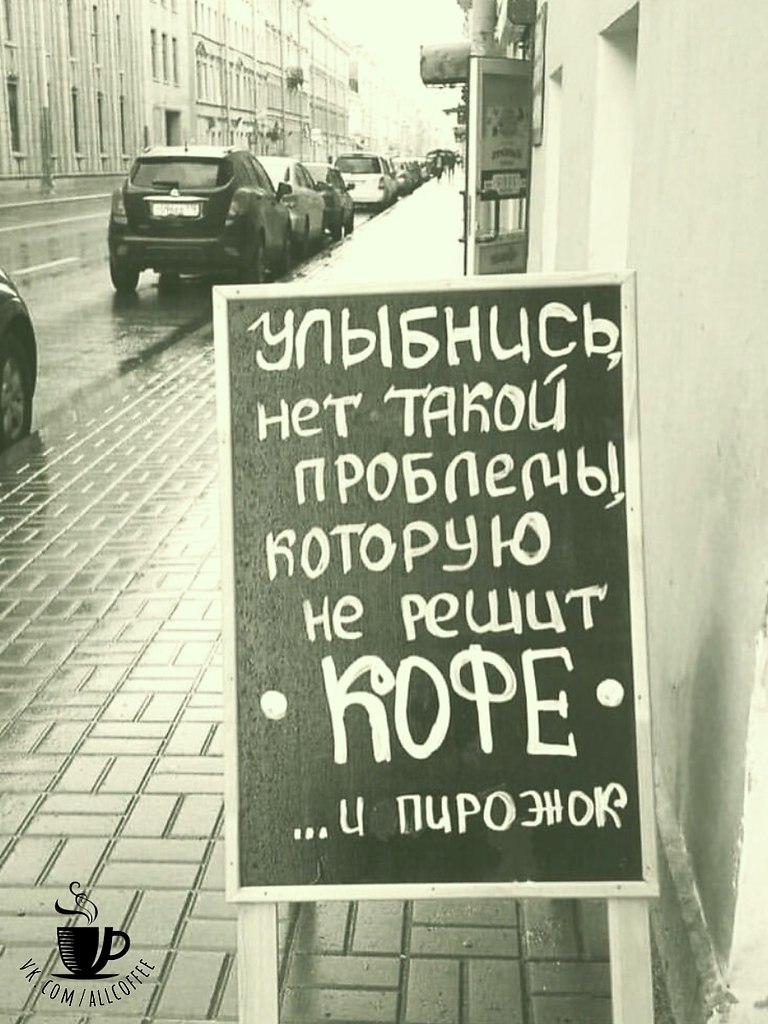 УЛЫБНИСЬ,
нет ТАКОЙ
ПРОБЛЕМЫ,
КОТОРУЮ
не решит
КОФЕ
...и пирожок
VK.COM/ALLCOFFEE